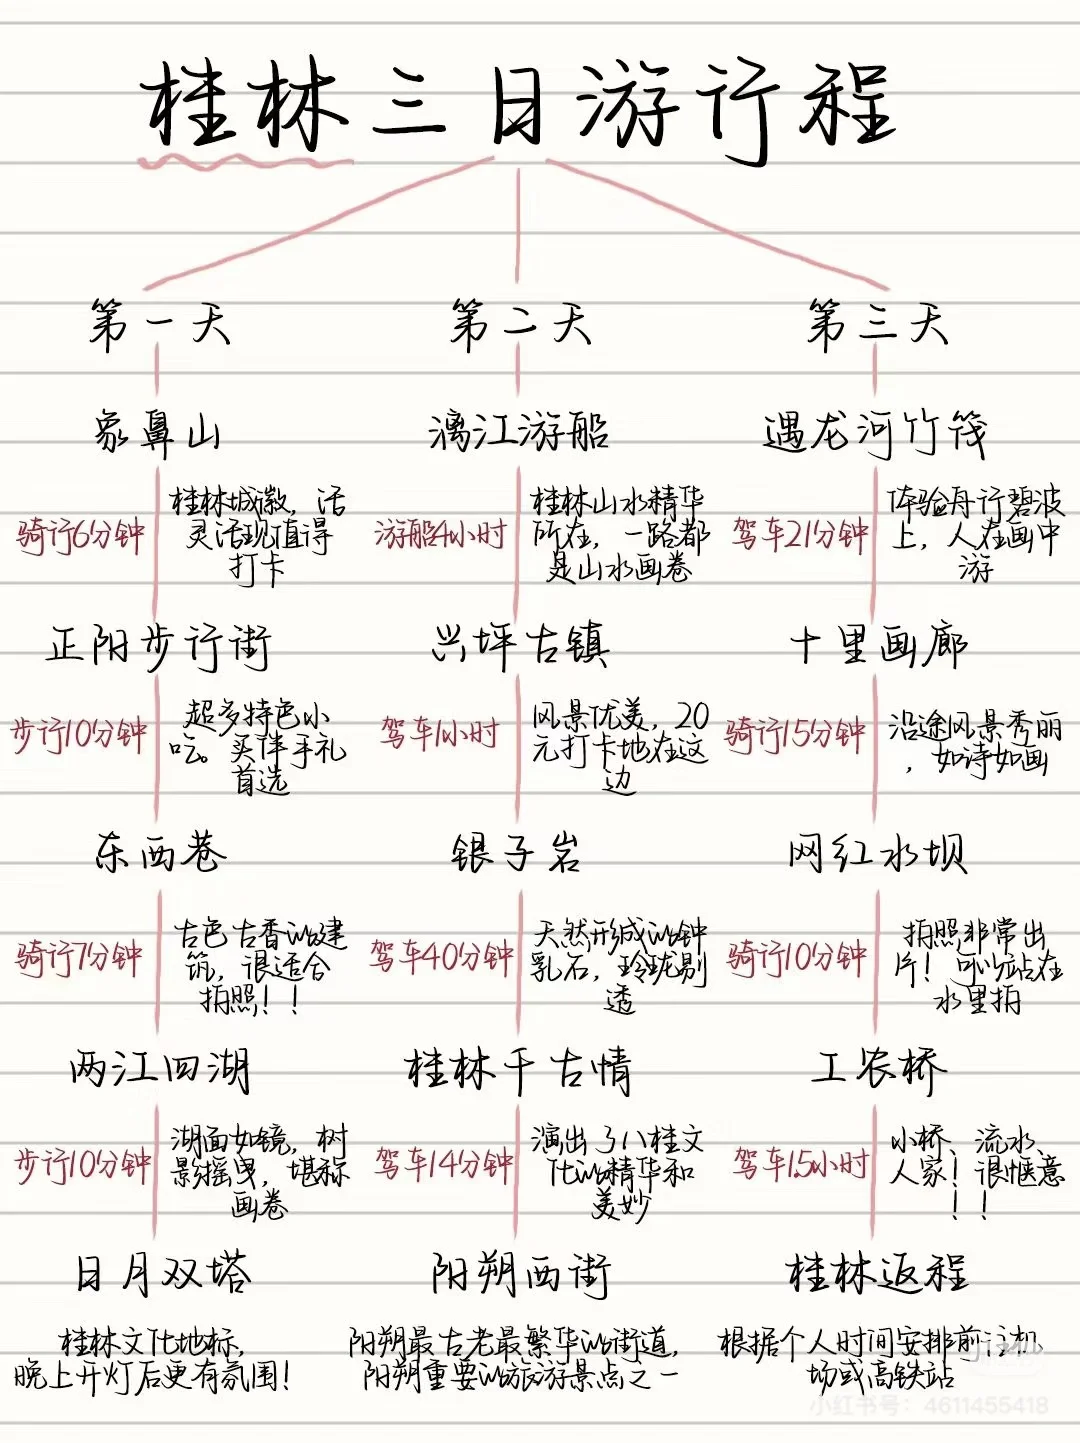 桂林三日游行程
第一天
象鼻山
骑行6分钟
桂林城徽，活
灵活现值得
打卡
正阳步行街
步行10分钟
超多特色小
吃。买伴手礼
首选
东西巷
骑行7分钟
古色古香的建
筑，很适合
拍照！！
两江四湖
步行10分钟
湖面如镜，树
影摇曳，堪称
画卷
日月双塔
桂林文化地标，
晚上开灯后更有氛围！
第二天
漓江游船
游船4小时
桂林山水精华
所在，一路都
是山水画卷
兴坪古镇
驾车1小时
风景优美，20
元打卡地在这
边
银子岩
驾车40分钟
天然形成的钟
乳石，玲珑剔
透
桂林千古情
驾车14分钟
演出了八桂文
化的精华和
美妙
阳朔西街
阳朔最古老最繁华的街道，
阳朔重要的旅游景点之一
第三天
遇龙河竹筏
驾车21分钟
体验舟行碧波
上，人在画中
游
十里画廊
骑行15分钟
沿途风景秀丽
，如诗如画
网红水坝
骑行10分钟
拍照非常出
片！可以站在
水里拍
工农桥
驾车1.5小时
小桥、流水、
人家！很惬意
！！
桂林返程
根据个人时间安排前往机
场或高铁站
小红书号：4611455418